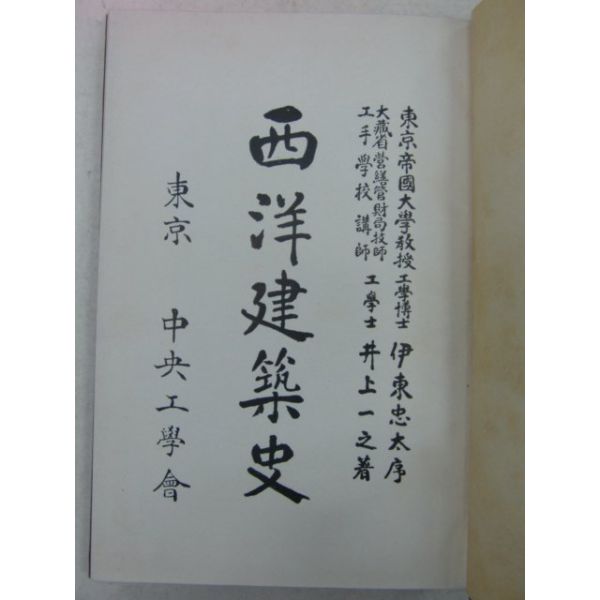 東京帝國大學教授 工學博士 伊東忠太序
大藏省營繕管財局技師
工手學校講師 工學士 井上一之著
西洋建築史
東京 中央工學會